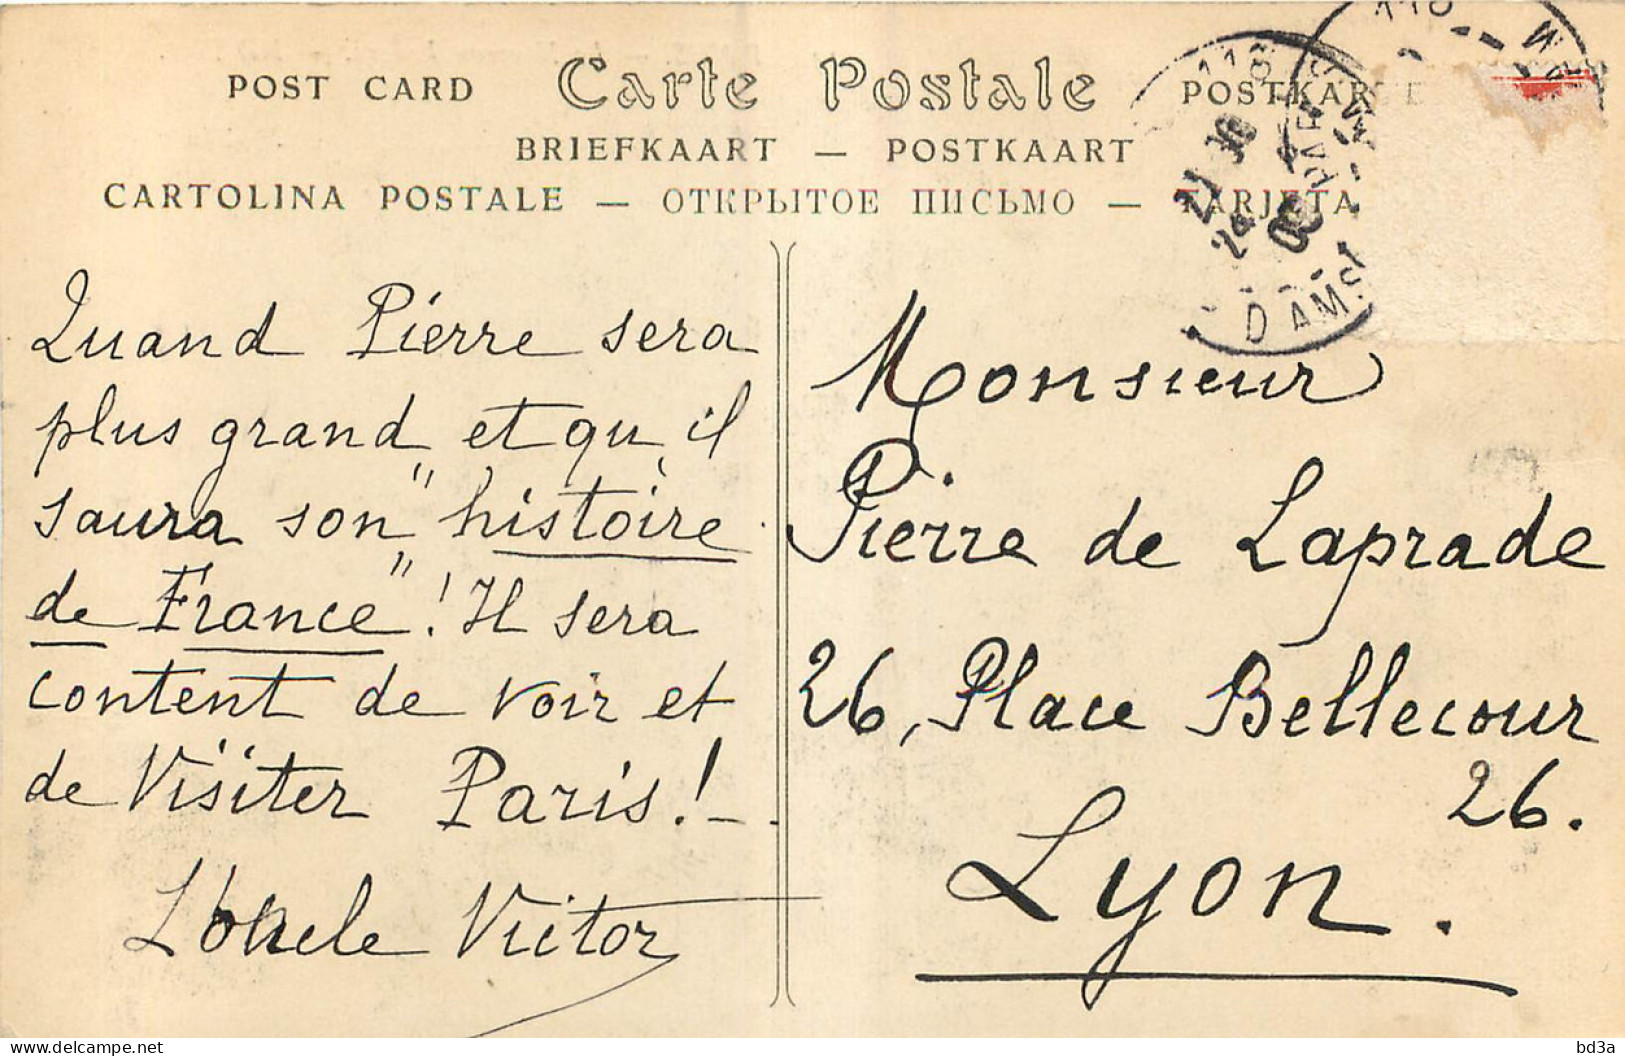 POST CARD Carte Postale POSTKARTE
BRIEFKAART — POSTKAART
CARTOLINA POSTALE — ОТКРЫТОЕ ПИСЬМО — TARJETA
Quand Pierre sera
plus grand et qu'il
saura son "histoire
de France"! Il sera
content de voir et
de Visiter Paris! -.
L'Oncle Victor
Monsieur
Pierre de Laprade
26, Place Bellecour
26.
Lyon.
bidmonfa.com
bd3a